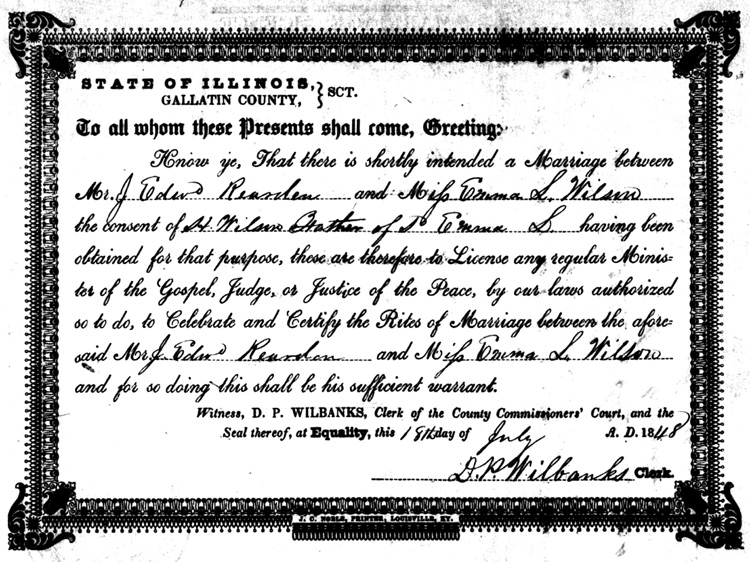 STATE OF ILLINOIS, } SCT.
GALLATIN COUNTY,
To all whom these Presents shall come, Greeting:
Know ye, That there is shortly intended a Marriage between
Mr. J Edwd Rearden and Miss Emma L. Wilson
the consent of H Wilson of Emma L having been
obtained for that purpose, these are therefore to License any regular Minis-
ter of the Gospel, Judge, or Justice of the Peace, by our laws authorized
so to do, to Celebrate and Certify the Rites of Marriage between the afore-
said Mr. J. Edwd Rearden and Miss Emma L. Wilson
and for so doing this shall be his sufficient warrant.
Witness, D. P. WILBANKS, Clerk of the County Commissioners' Court, and the
Seal thereof, at Equality, this 18th day of July A. D. 1848
D. P. Wilbanks Clerk.
J. C. NOBLE, PRINTER, LOUISVILLE, KY.